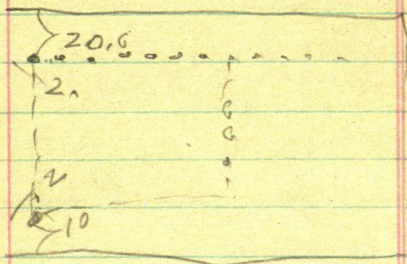 20.6
2.
10